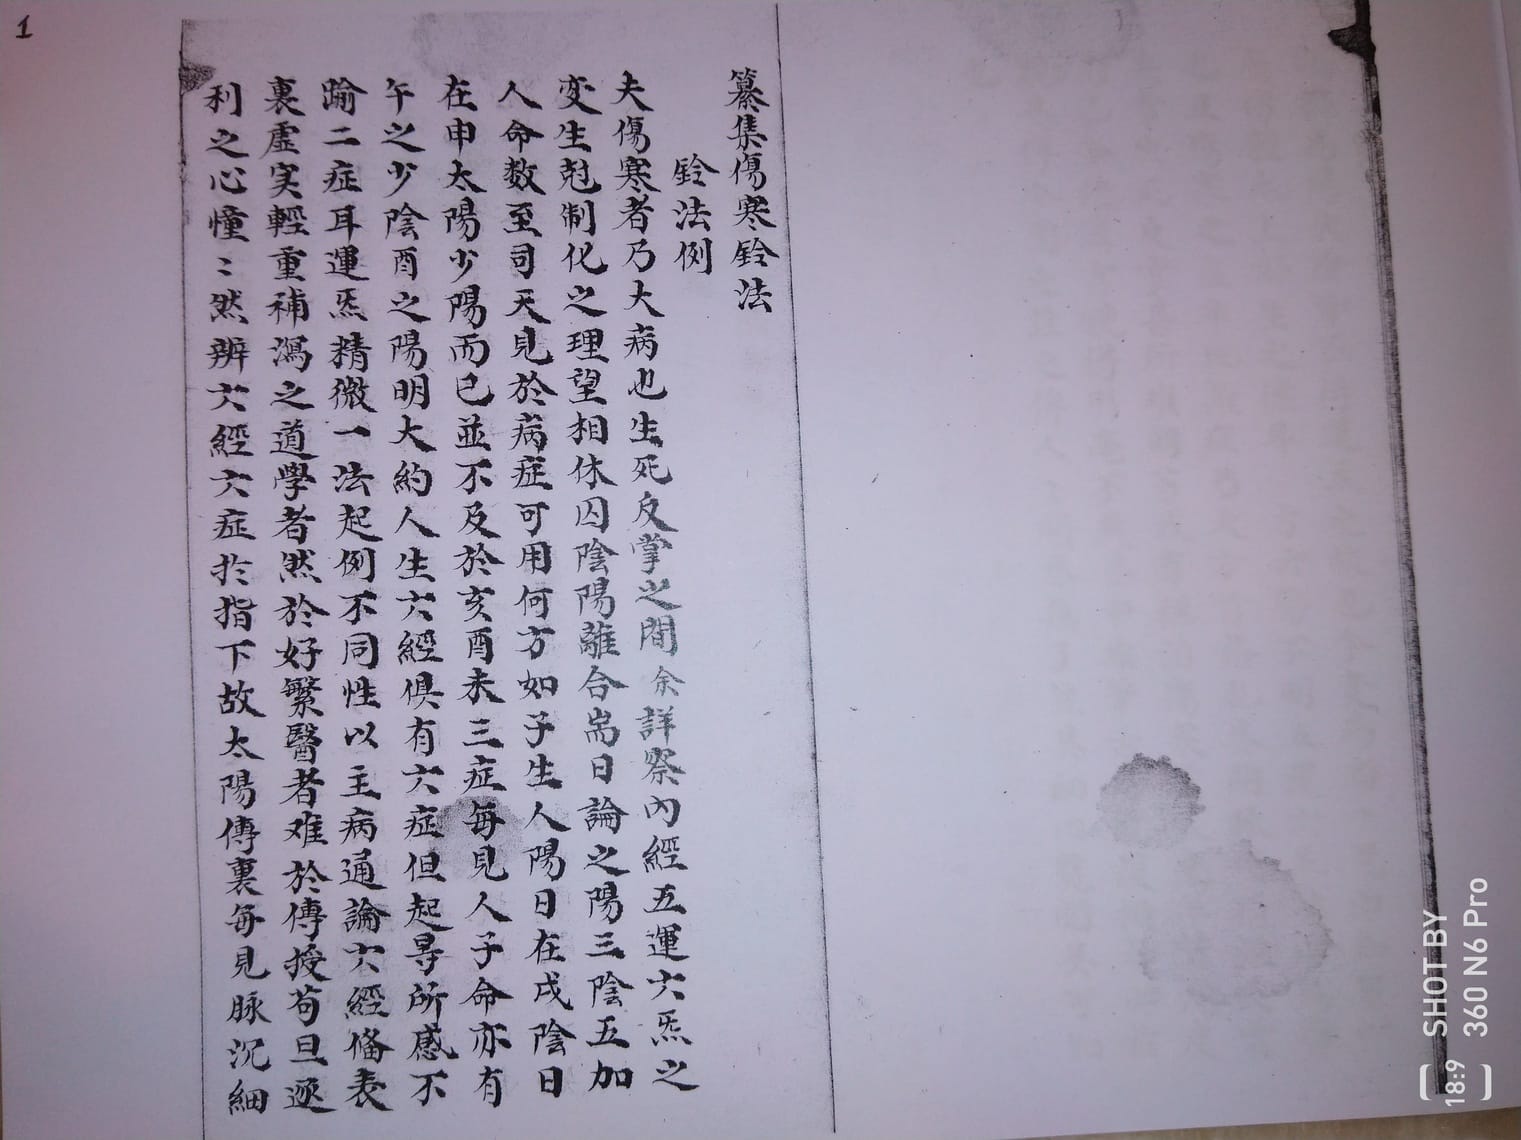 1
纂集傷寒鈐法
鈐法例
夫傷寒者乃大病也生死反掌之間余詳察內經五運六炁之
变生尅制化之理望相休囚陰陽離合耑日論之陽三陰五加
人命数至司天見於病症可用何方如子生人陽日在戌陰日
在申太陽少陽而已並不及於亥酉未三症每見人子命亦有
午之少陰酉之陽明大約人生六經俱有六症但起尋所感不
踰二症耳運炁精微一法起例不同性以主病通論六經俻表
裏虛実輕重補瀉之道學者然於好繁醫者难於傳授苟且逐
利之心憧〻然辨六經六症扵指下故太陽傳裏每見脉沉細
SHOT BY
360 N6 Pro
18:9